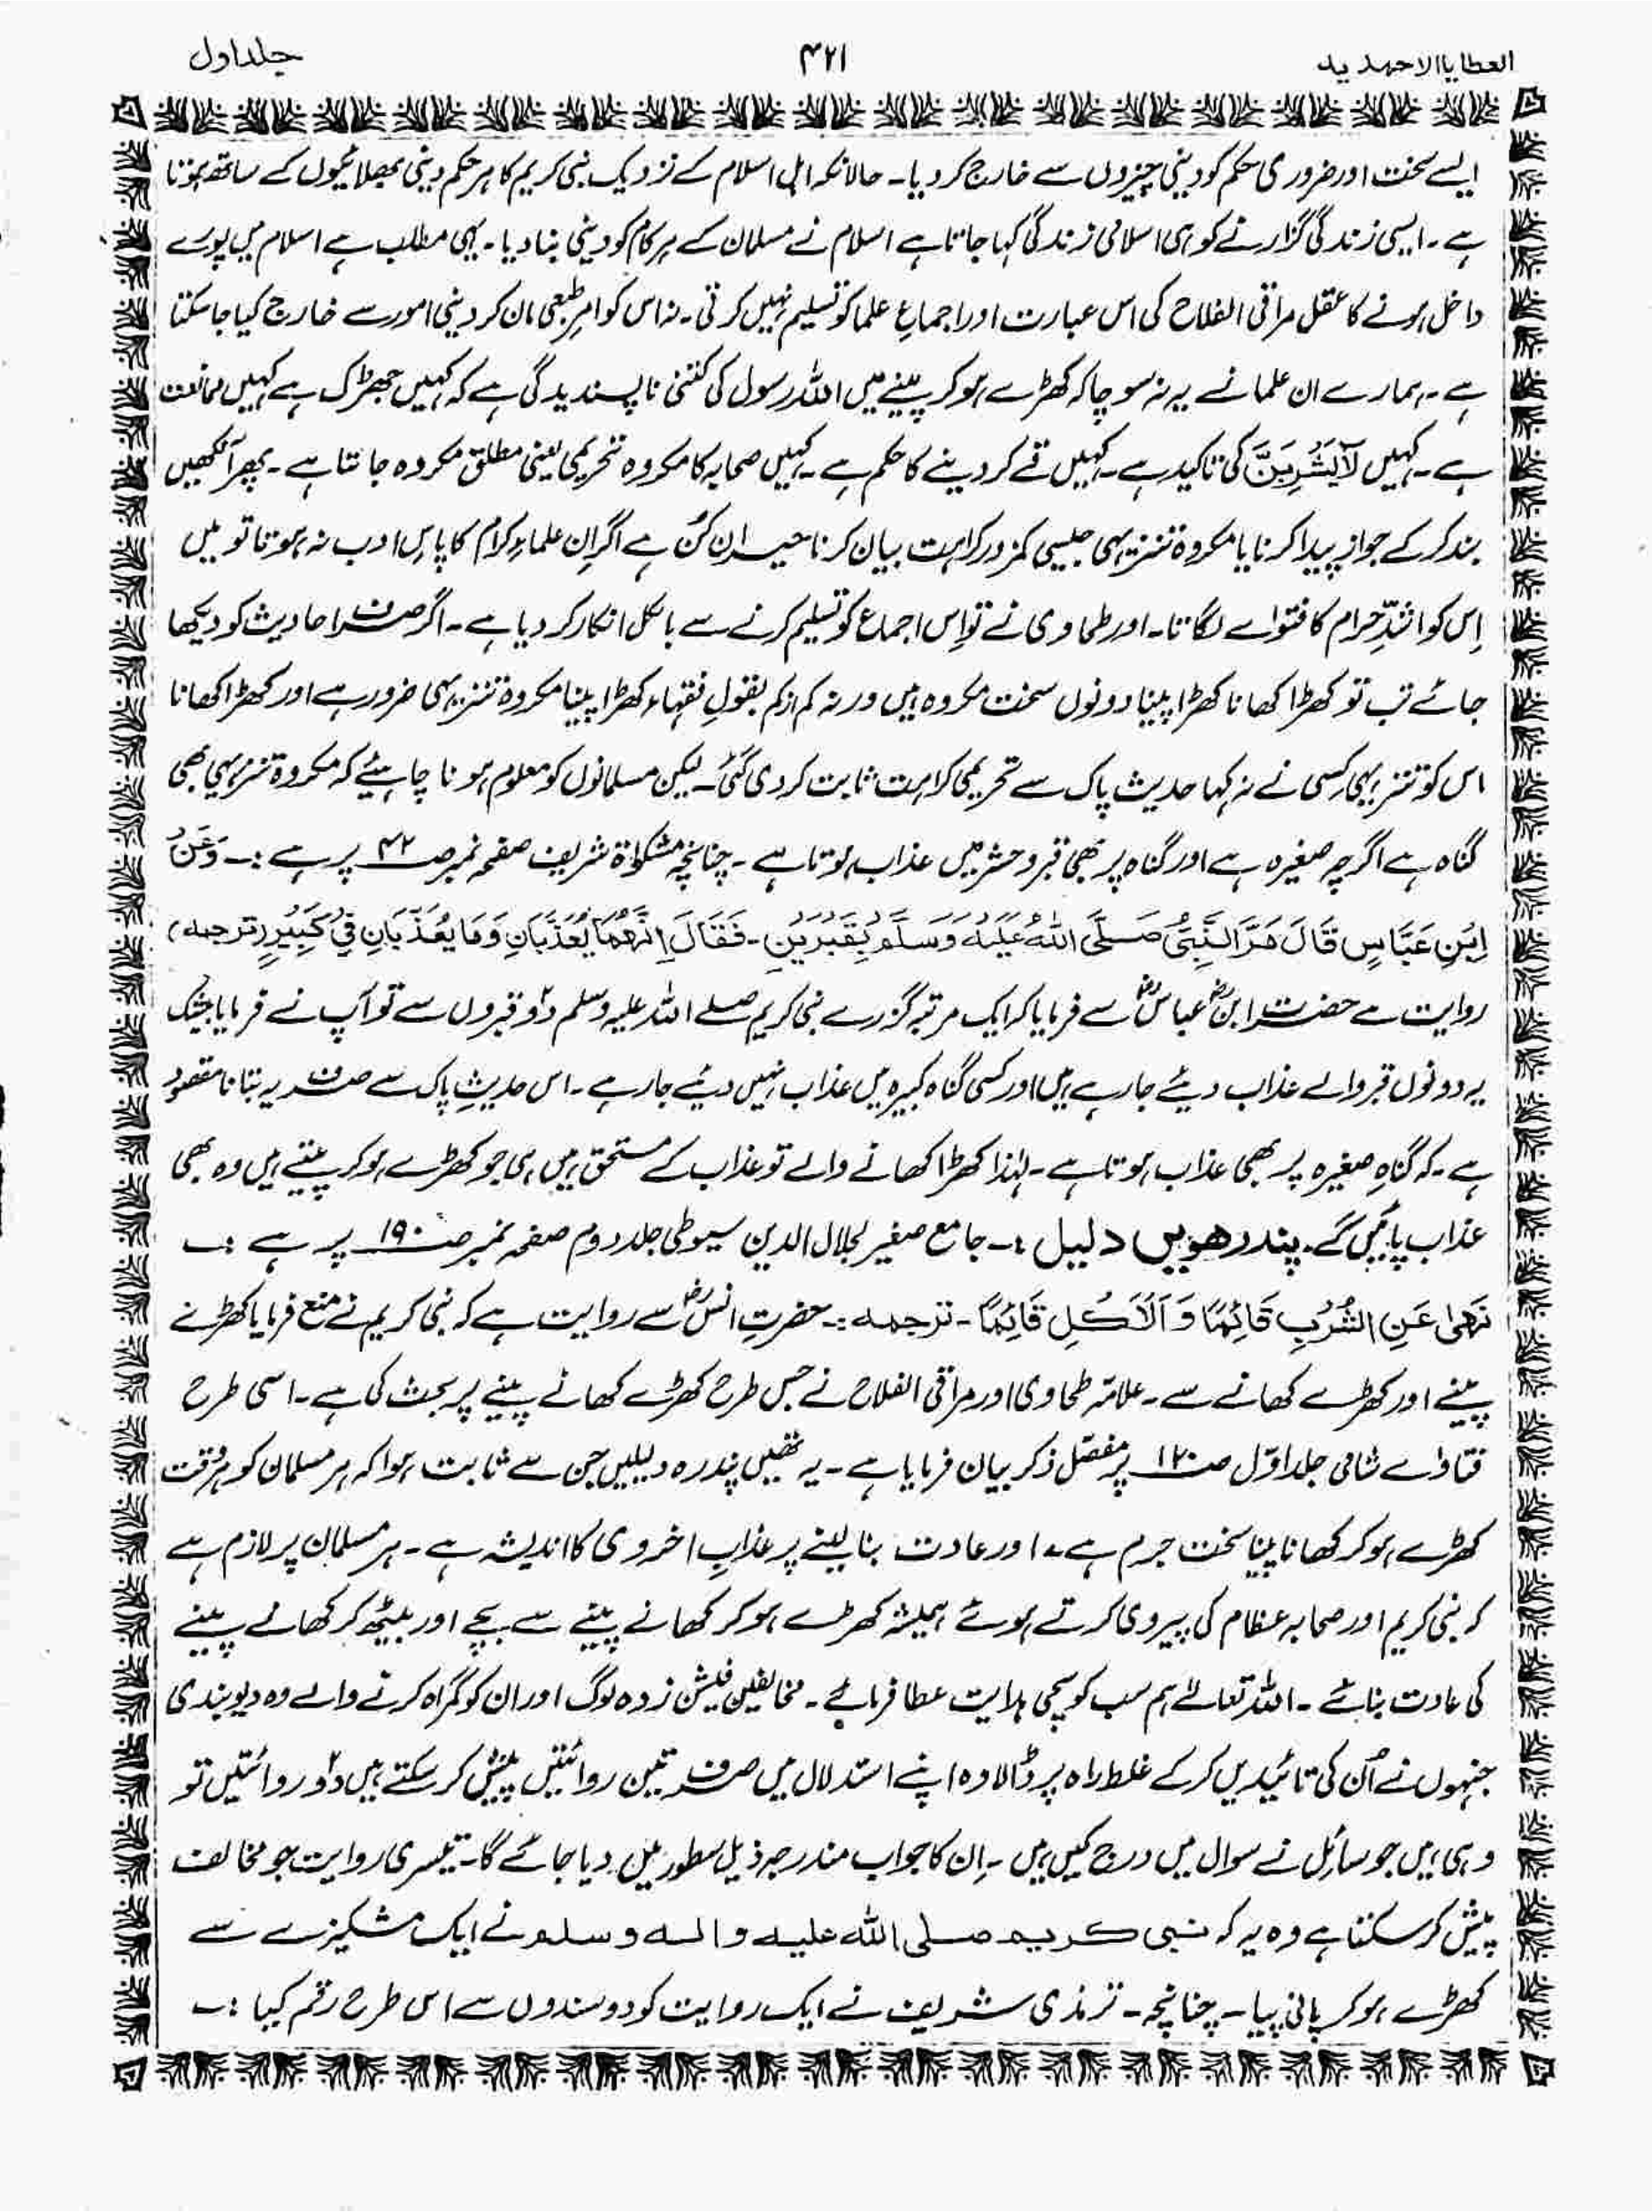 العطایا الاحمدیہ ۴۲۱ جلد اول
ایسے سخت اور ضروری حکم کو دینی چیزوں سے خارج کر دیا۔ حالانکہ اہل اسلام کے نزدیک نبی کریم کا ہر حکم دینی بھلائیوں کے ساتھ ہوتا
ہے۔ ایسی زندگی گزارنے کو ہی اسلامی زندگی کہا جاتا ہے اسلام نے مسلمان کے ہر کام کو دینی بنا دیا۔ یہی مطلب ہے اسلام میں پورے
داخل ہونے کا عقل مراقی الفلاح کی اس عبارت اور اجماعِ علما کو تسلیم نہیں کرتی۔ نہ اس کو امرِ طبعی مان کر دینی امور سے خارج کیا جا سکتا
ہے۔ ہمارے ان علما نے یہ نہ سوچا کہ کھڑے ہو کر پینے میں اللہ رسول کی کتنی ناپسندیدگی ہے کہ کہیں جھڑک ہے کہیں ممانعت
ہے۔ کہیں لَایَشْرِبَنَّ کی تاکید ہے۔ کہیں قے کر دینے کا حکم ہے۔ کہیں صحابہ کا مکروہ تحریمی یعنی مطلق مکروہ جانتا ہے۔ پھر آنکھیں
بند کر کے جواز پیدا کرنا یا مکروہ تنزیہی جیسی کمزور کراہت بیان کرنا حیران کُن ہے اگر اِن علماءِ کرام کا پاسِ ادب نہ ہوتا تو میں
اِس کو اشدِّ حرام کا فتوٰے لگاتا۔ اور طحاوی نے تو اِس اجماع کو تسلیم کرنے سے بالکل انکار کر دیا ہے۔ اگر صرف احادیث کو دیکھا
جائے تب تو کھڑا کھانا کھڑا پینا دونوں سخت مکروہ ہیں ورنہ کم از کم بقولِ فقہاء کھڑا پینا مکروہ تنزیہی ضرور ہے اور کھڑا کھانا
اس کو تنزیہی کسی نے نہ کہا حدیث پاک سے تحریمی کراہت ثابت کر دی گئی۔ لیکن مسلمانوں کو معلوم ہونا چاہیئے کہ مکروہ تنزیہی بھی
گناہ ہے اگرچہ صغیرہ ہے اور گناہ پر بھی قبر و حشر میں عذاب ہوتا ہے۔ چنانچہ مشکوٰۃ شریف صفحہ نمبر صـ ۴۲ پر ہے :۔ وَعَنْ
اِبْنِ عَبَّاسٍ قَالَ مَرَّ النَّبِیُّ صَلَّی اللّٰهُ عَلَیْهِ وَسَلَّمَ بِقَبْرَیْنِ۔ فَقَالَ اِنَّهُمَا یُعَذَّبَانِ وَمَا یُعَذَّبَانِ فِیْ کَبِیْرٍ (ترجمہ)
روایت ہے حضرت ابن عباسؓ سے فرمایا کہ ایک مرتبہ گزرے نبی کریم صلے اللہ علیہ وسلم دو قبروں سے تو آپ نے فرمایا بیشک
یہ دونوں قبر والے عذاب دیئے جا رہے ہیں اور کسی گناہ کبیرہ میں عذاب نہیں دیئے جا رہے۔ اس حدیثِ پاک سے صرف یہ بتانا مقصود
ہے۔ کہ گناہِ صغیرہ پر بھی عذاب ہوتا ہے۔ لہٰذا کھڑا کھانے والے تو عذاب کے مستحق ہیں ہی جو کھڑے ہو کر پیتے ہیں وہ بھی
عذاب پائیں گے۔ پندرھویں دلیل :۔ جامع صغیر لجلال الدین سیوطی جلد دوم صفحہ نمبر صـ ۱۹۰ پر ہے :۔
نَهٰی عَنِ الشُّرْبِ قَائِمًا وَ الْاَکْلِ قَائِمًا۔ ترجمہ :۔ حضرتِ انسؓ سے روایت ہے کہ نبی کریم نے منع فرمایا کھڑے
پینے اور کھڑے کھانے سے۔ علامہ طحاوی اور مراقی الفلاح نے جس طرح کھڑے کھانے پینے پر بحث کی ہے۔ اسی طرح
فتاوٰے شامی جلد اوّل صـ ۱۲۰ پر مفصّل ذکر بیان فرمایا ہے۔ یہ تھیں پندرہ دلیلیں جن سے ثابت ہوا کہ ہر مسلمان کو ہر وقت
کھڑے ہو کر کھانا پینا سخت جرم ہے۔ اور عادت بنا لینے پر عذابِ اخروی کا اندیشہ ہے۔ ہر مسلمان پر لازم ہے
کہ نبی کریم اور صحابہ عظام کی پیروی کرتے ہوئے ہمیشہ کھڑے ہو کر کھانے پینے سے بچے اور بیٹھ کر کھانے پینے
کی عادت بنائے۔ اللہ تعالےٰ ہم سب کو سچی ہدایت عطا فرمائے۔ مخالفین فیشن زدہ لوگ اور ان کو گمراہ کرنے والے وہ دیوبندی
جنہوں نے اُن کی تائیدیں کر کے غلط راہ پر ڈالا وہ اپنے استدلال میں صرف تین روائتیں پیش کر سکتے ہیں دو روائتیں تو
وہی ہیں جو سائل نے سوال میں درج کیں ہیں۔ اِن کا جواب مندرجہ ذیل سطور میں دیا جائے گا۔ تیسری روایت جو مخالف
پیش کر سکتا ہے وہ یہ کہ نبی کریم صلی اللہ علیہ والہ وسلم نے ایک مشکیزے سے
کھڑے ہو کر پانی پیا۔ چنانچہ۔ ترمذی شریف نے ایک روایت کو دو سندوں سے اس طرح رقم کیا :۔